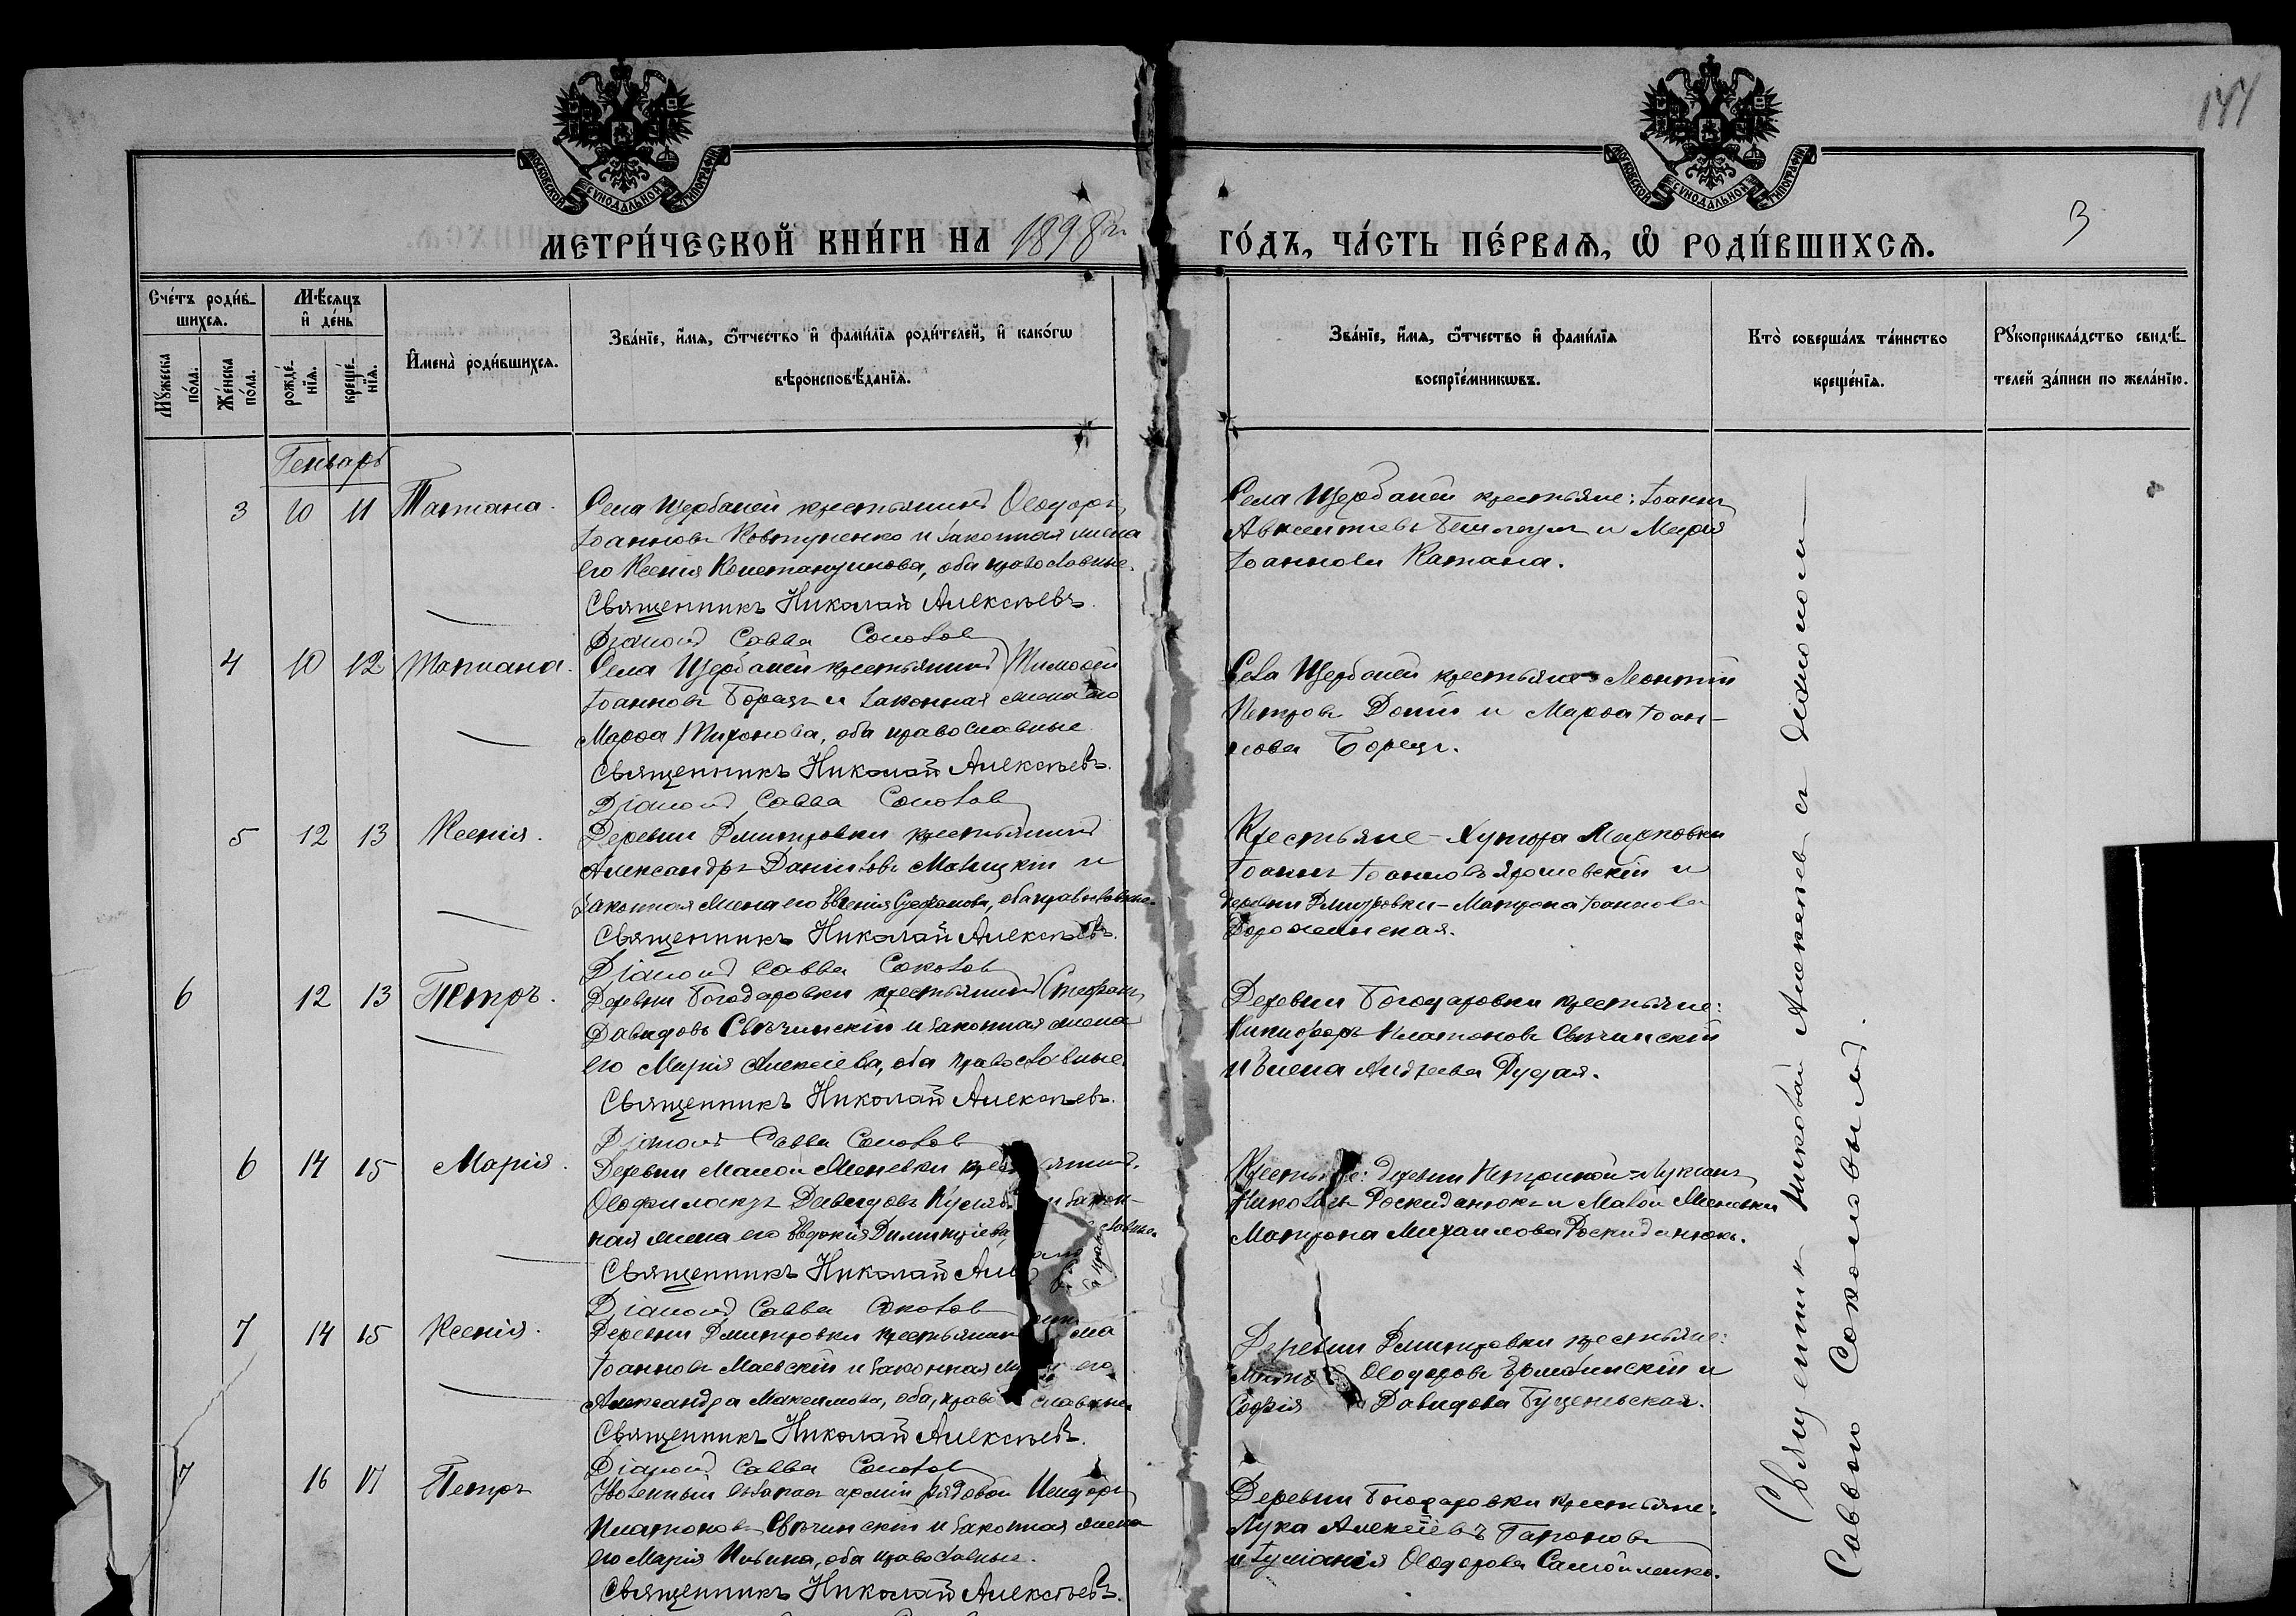 МОСКОВСКОЙ СѴНОДАЛЬНОЙ ТИПОГРАФІИ
МОСКОВСКОЙ СѴНОДАЛЬНОЙ ТИПОГРАФІИ
3
МЕТРИ́ЧЕСКОЙ КНИ́ГИ НА 1898 ГО́ДЪ, ЧА́СТЬ ПЕ́РВАѦ, Ѡ҆ РОДИ́ВШИХСѦ.
Сче́тъ роди́в-
шихсѧ.
Мꙋ́жеска по́ла.
Же́нска по́ла.
Мѣ́сѧцъ
и҆ де́нь
рожде́-
нїѧ.
креще́-
нїѧ.
И҆мена̀ роди́вшихсѧ.
Зва́нїе, и҆́мѧ, ѻ҆́тчество и҆ фами́лїѧ роди́телей, и҆ како́гѡ
вѣроисповѣ́данїѧ.
Зва́нїе, и҆́мѧ, ѻ҆́тчество и҆ фами́лїѧ
воспрїе́мникѡвъ.
Кто̀ соверша́лъ та́инство
креще́нїѧ.
Рꙋкоприкла́дство свидѣ́-
телей за́писи по жела́нїю.
Генварь
3 10 11 Татіана.
Села Щербаней крестьянинъ Ѳеодоръ
Іоанновъ Ковтуненко и законная жена
его Ксенія Константинова, оба православные.
Священникъ Николай Алексѣевъ.
Діаконъ Савва Соколов
Села Щербаней крестьяне: Іоаннъ
Авксентіевъ и Марія
Іоаннова Катана.
4 10 12 Татіана.
Села Щербаней крестьянинъ Тимоѳей
Іоанновъ Борецъ и законная жена его
Марѳа Тихонова, оба православные
Священникъ Николай Алексѣевъ.
Діаконъ Савва Соколов
Села Щербаней крестьяне Леонтій
Петровъ и Марѳа Іоан-
нова Борецъ.
5 12 13 Ксенія.
Деревни Дмитровки крестьянинъ
Александръ Даниловъ и
законная жена его Евгенія Стефанова, оба православные.
Священникъ Николай Алексѣевъ.
Діаконъ Савва Соколов
Крестьяне - Хутора
Іоаннъ Іоанновъ Ярошевскій и
деревни Дмитровки - Матрона Іоаннова
6 12 13 Петръ.
Деревни Богодаровки крестьянинъ Стефанъ
Давидовъ Свѣчинскій и законная жена
его Марія Алексіева, оба православные.
Священникъ Николай Алексѣевъ.
Діаконъ Савва Соколов
Деревни Богодаровки крестьяне:
Никифоръ Платоновъ Свѣчинскій
и Елена Андреева Дудая.
6 14 15 Марія.
Деревни Малой Меневки
Ѳеофилактъ Давидовъ и закон-
ная жена его Евдокія Димитріева,
Священникъ Николай
Діаконъ Савва Соколов
деревни Петриной - Лукіанъ
Николаевъ Роскиданюкъ и Малой Меневки
Матрона Михаилова Роскиданюкъ.
7 14 15 Ксенія.
Деревни Дмитровки
Іоанновъ Маевскій и законная его
Александра Максимова, оба, православные
Священникъ Николай Алексѣевъ.
Діаконъ Савва Соколов
Деревни Дмитровки крестьяне:
Ѳеодоровъ и
Софія Давидова
7 16 17 Петръ
Уволенный въ запас арміи рядовой
Платоновъ Свѣчинскій и законная жена
его Марія Ильина, оба православные.
Священникъ Николай Алексѣевъ.
Деревни Богодаровки крестьяне:
Лука Алексіевъ
Ѳеодорова Самойленко.
Священникъ Николай Алексѣевъ съ діакономъ
Саввою Соколовымъ.